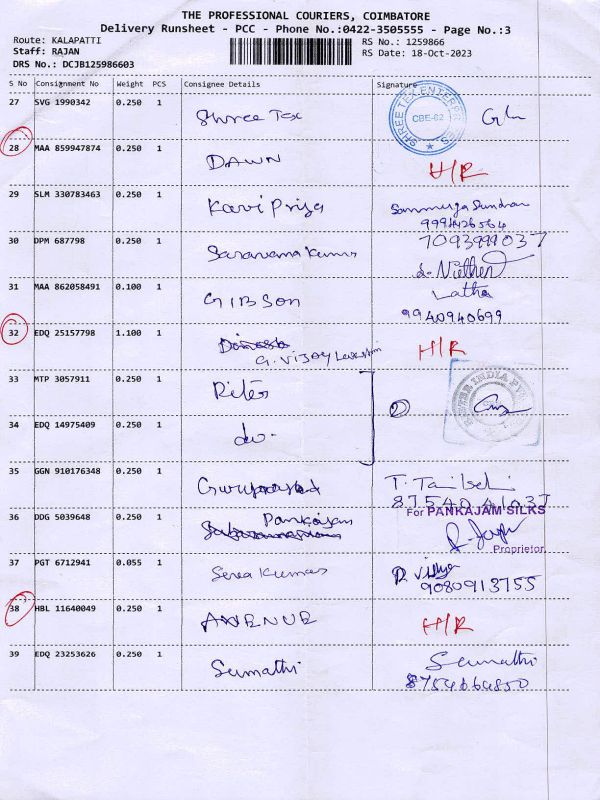 THE PROFESSIONAL COURIERS, COIMBATORE
Delivery Runsheet - PCC - Phone No.:0422-3505555 - Page No.:3
Route: KALAPATTI
RS No.: 1259866
Staff: RAJAN
RS Date: 18-Oct-2023
DRS No.: DCJB125986603
S No Consignment No Weight PCS Consignee Details Signature
27 SVG 1990342 0.250 1 Shree Tex
SHREE TEX ENTERPRISES
CBE-62
28 MAA 859947874 0.250 1 DAWN H/R
29 SLM 330783463 0.250 1 Kavi Priya
9994426564
30 DPM 687798 0.250 1 Saravana Kumar 7093999037
31 MAA 862058491 0.100 1 GIBSON Latha
9940940699
32 EDQ 25157798 1.100 1 G. VIJAY Lakshm H/R
33 MTP 3057911 0.250 1 Rites
INDIA
34 EDQ 14975409 0.250 1 do.
2
35 GGN 910176348 0.250 1 Guruprasad
36 DDG 5039648 0.250 1 Pankajam For PANKAJAM SILKS
Proprietor
37 PGT 6712941 0.055 1 P. Vidhya
9080913755
38 HBL 11640049 0.250 1 AVENUE H/R
39 EDQ 23253626 0.250 1 Sumathi Sumathi
8754664850